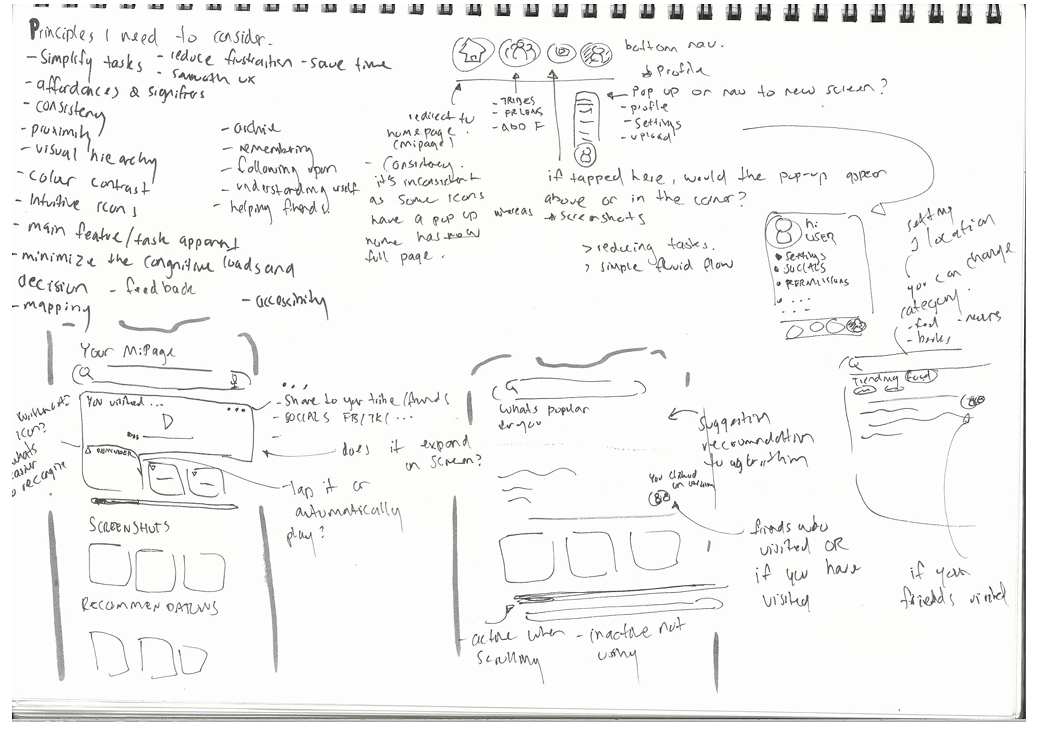 Principles I need to consider.
- Simplify tasks - reduce frustration - save time
- smooth ux
- affordances & signifiers
- consistency
- proximity
- visual hierarchy
- colour contrast
- Intuitive icons
- main feature/task apparent
- minimize the congnitive loads and
decision - feedback
- mapping
- archive
- remembering
- following upon
- understanding urself
- helping friends.
- accessinity
bottom nav.
↳ Profile
Pop up or nav to new screen?
- profile
- Settings
- upload
- TRIBES
- FRIENDS
- ADD F
redirect to
homepage.
(mipage)
- Consistency.
it's inconsistent
as some icons
have a pop up whereas
home has new
full page.
if tapped here, would the pop-up appear
above or in the corner?
→ Screenshots
> reducing tasks.
> simple fluid flow
hi
USER
• SETTINGS
• SOCIALS
• PERMISSIONS
• ...
setting
location
you can change
category.
- food - news
- books
Trending Food
if your
friends visited
Your MiPage
You visited ...
...
- Share to your tribe/friends
- SOCIALS FB/TK/...
REMINDER
icon?
whats
easier
to recognize
- does it expand
on screen?
- tap it or
automatically
play?
SCREENSHOTS
RECOMMENDATIONS
Whats popular
for you
suggestion
recommendation
to algorithim
You
friends who
visited OR
if you have
visited
- active when
scrolling
- inactive not
using